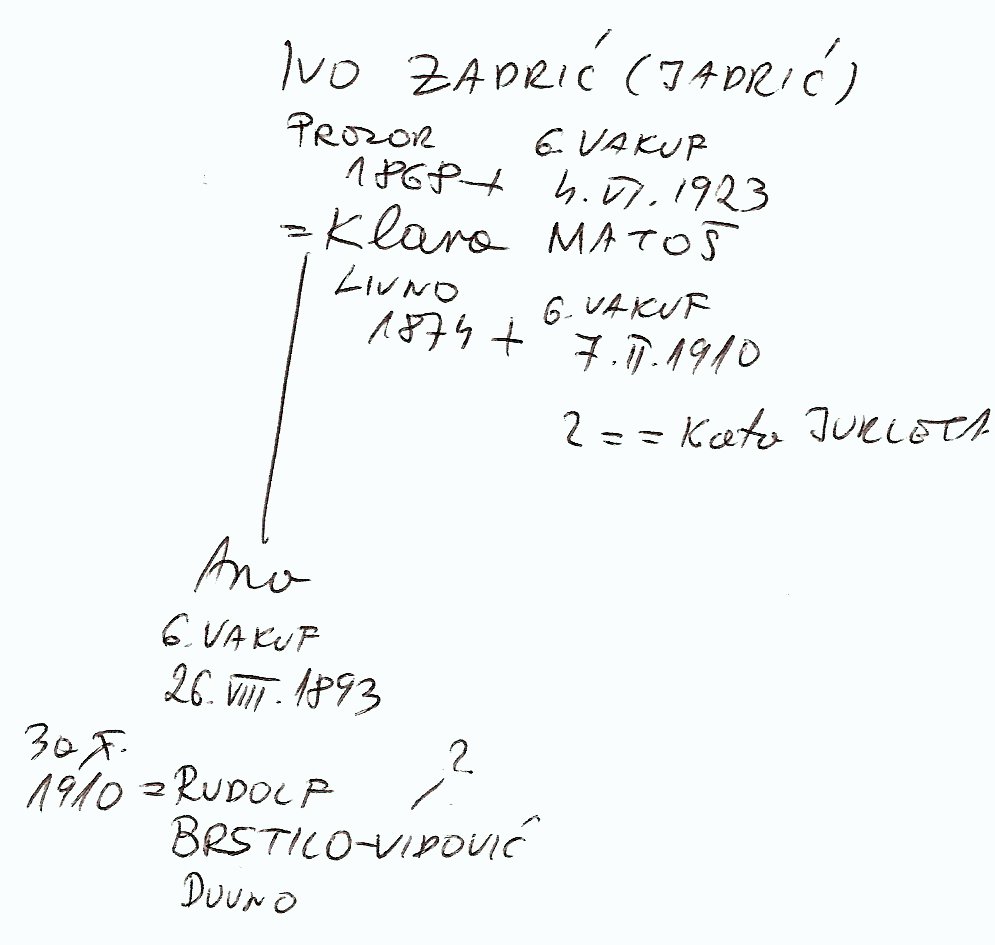 IVO ZADRIĆ (JADRIĆ)
PROZOR G. VAKUF
1868 + 4. VI. 1923
= Klara MATOŠ
LIVNO G. VAKUF
1874 + 7. II. 1910
2 = = Kata JURLETA
Ana
G. VAKUF
26. VIII. 1893
30 X. 2
1910 = RUDOLF
BRSTILO-VIDOVIĆ
DUVNO